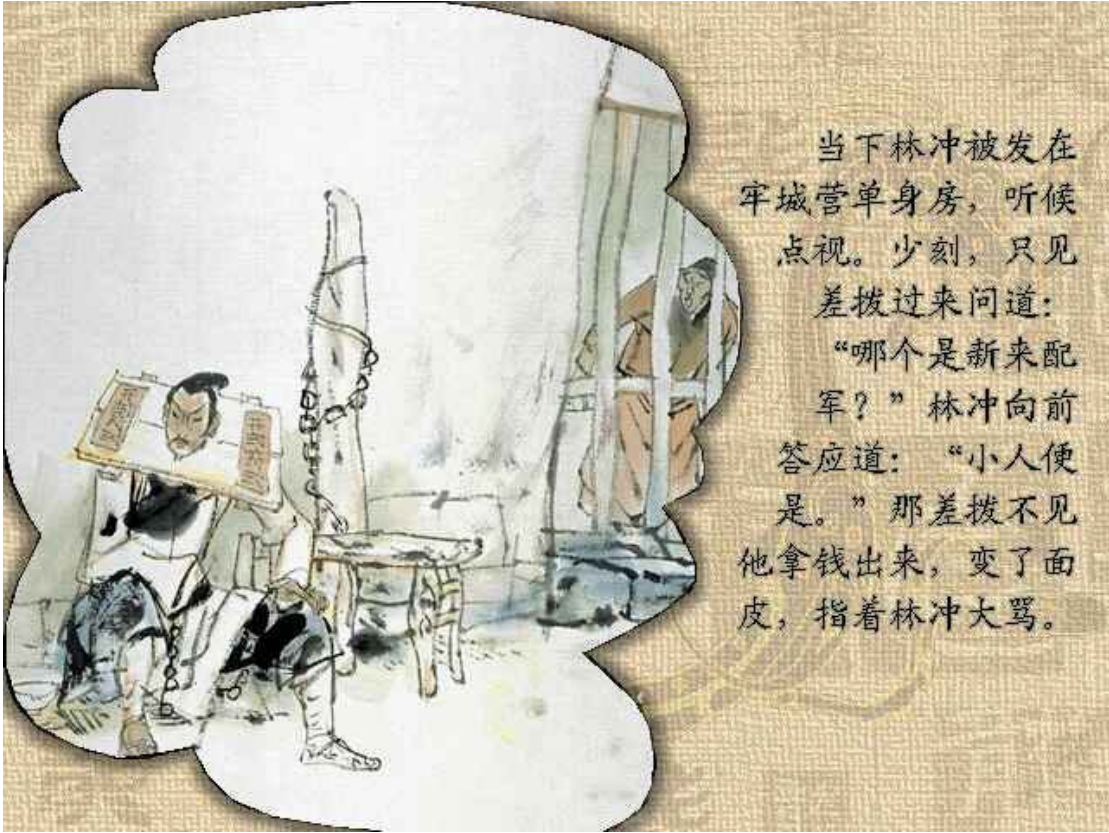 当下林冲被发在
牢城营单身房，听候
点视。少刻，只见
差拨过来问道：
“哪个是新来配
军？”林冲向前
答应道：“小人便
是。”那差拨不见
他拿钱出来，变了面
皮，指着林冲大骂。